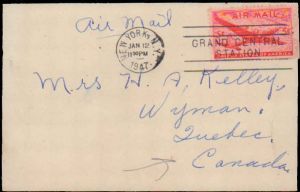 Air Mail
NEW YORK, N.Y.
JAN 12
1947
GRAND CENTRAL
STATION
AIR MAIL
5¢
OF AMERICA
Mrs H. A. Kelley,
Wyman,
Quebec,
Canada.